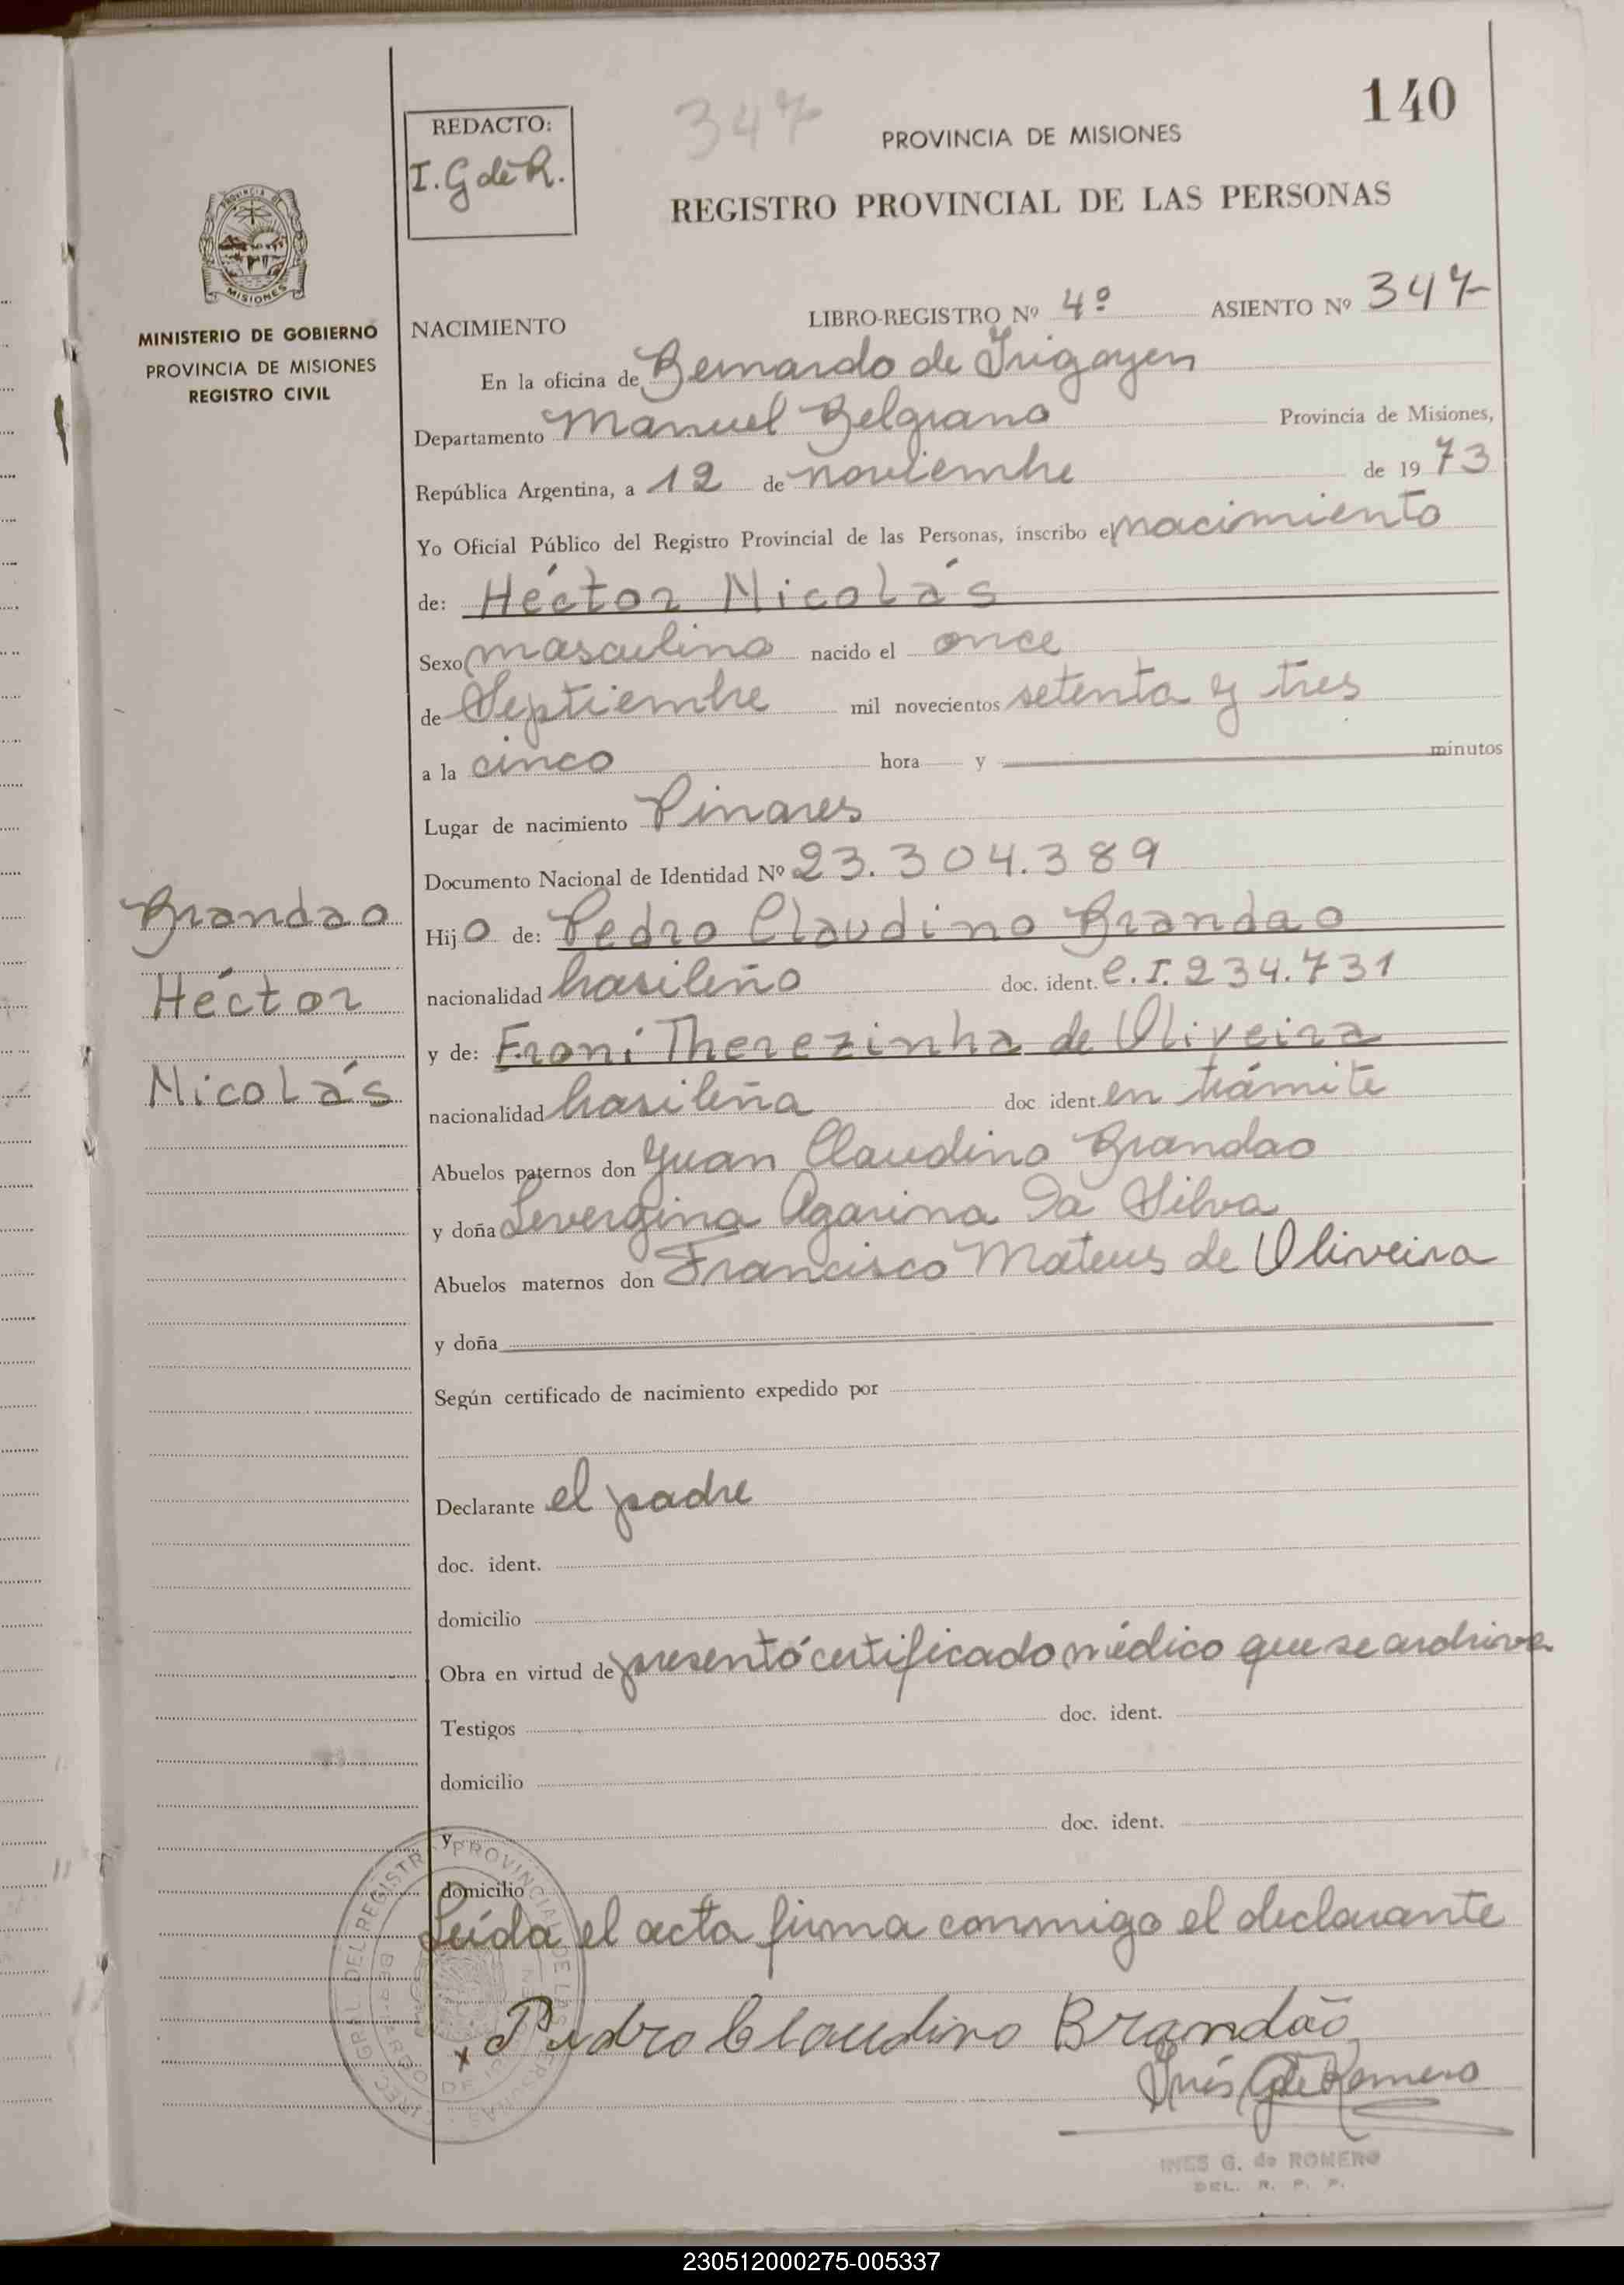 140
REDACTO:
I. G de R.
347
PROVINCIA DE MISIONES
REGISTRO PROVINCIAL DE LAS PERSONAS
MISIONES
MINISTERIO DE GOBIERNO
PROVINCIA DE MISIONES
REGISTRO CIVIL
NACIMIENTO LIBRO-REGISTRO Nº 4º ASIENTO Nº 347
En la oficina de Bernardo de Irigoyen
Departamento Manuel Belgrano Provincia de Misiones,
República Argentina, a 12 de noviembre de 1973
Yo Oficial Público del Registro Provincial de las Personas, inscribo el nacimiento
de: Héctor Nicolás
Sexo masculino nacido el once
de Septiembre mil novecientos setenta y tres
a la cinco hora y minutos
Lugar de nacimiento Pinares
Documento Nacional de Identidad Nº 23.304.389
Brandao
Héctor
Nicolás
Hijo de: Pedro Claudino Brandao
nacionalidad brasileño doc. ident. C.I. 234.731
y de: Eroni Therezinha de Oliveira
nacionalidad brasileña doc ident. en trámite
Abuelos paternos don Juan Claudino Brandao
y doña Levergina Agarina Da Silva
Abuelos maternos don Francisco Mateus de Oliveira
y doña
Según certificado de nacimiento expedido por
Declarante el padre
doc. ident.
domicilio
Obra en virtud de presentó certificado médico que se archiva
Testigos doc. ident.
domicilio
y doc. ident.
domicilio
Leída el acta firma conmigo el declarante
x Pedro Claudino Brandão
Inés G de Romero
INES G. de ROMERO
DEL. R. P. P.
230512000275-005337